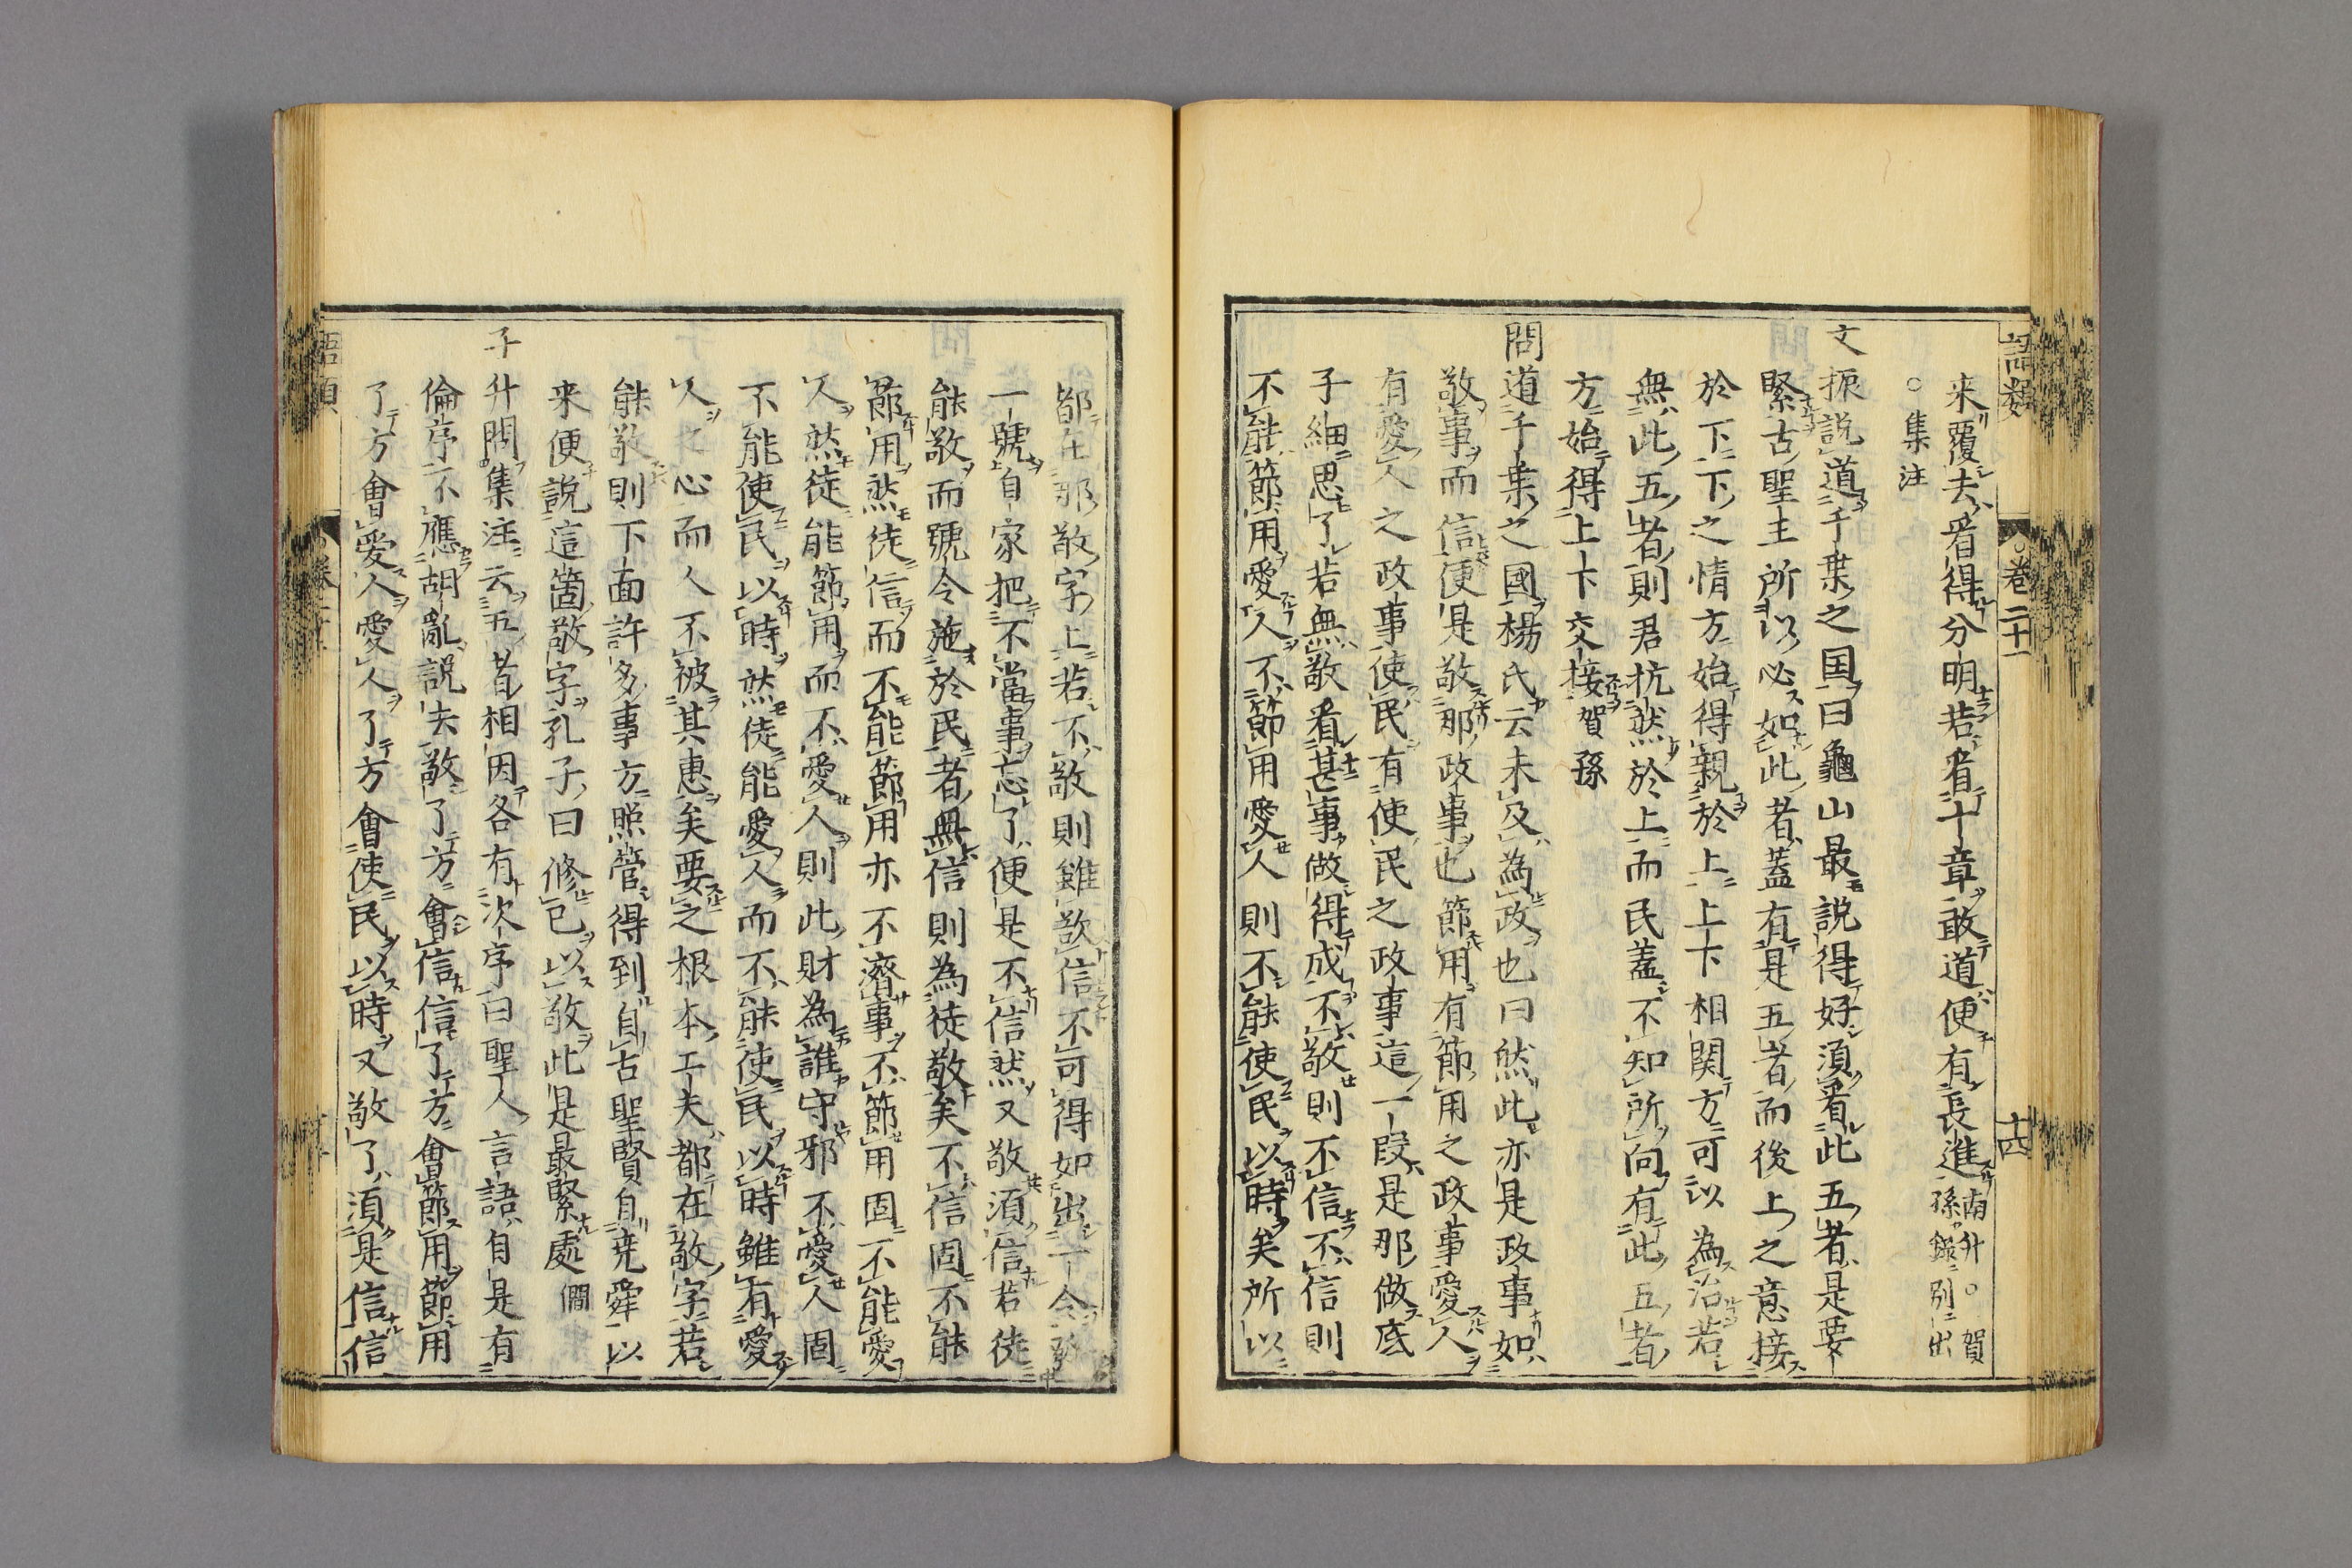 語類
卷二十一
十四
来覆去看得分明若看十章敢道便有長進南升○賀孫録別出
○集注
文振說道千乗之国曰龜山最說得好須看此五者是要
緊古聖主所以必如此者蓋有是五者而後上之意接
於下下之情方始得親於上上下相関方可以為治若
無此五者則君抗然於上而民蓋不知所向有此五者
方始得上下交接賀孫
問道千乗之國楊氏云未及為政也曰然此亦是政事如
敬事而信便是敬那政事也節用有節用之政事愛人
有愛人之政事使民有使民之政事這一段是那做底
子細思了若無敬看甚事做得成不敬則不信不信則
不能節用愛人不節用愛人則不能使民以時矣所以
都在那敬字上若不敬則雖欲信不可得如出一令發
一號自家把不當事忘了便是不信然又敬須信若徒
能敬而號令施於民者無信則為徒敬矣不信固不能
節用然徒信而不能節用亦不濟事不節用固不能愛
人然徒能節用而不愛人則此財為誰守邪不愛人固
不能使民以時然徒能愛人而不能使民以時雖有愛
人之心而人不被其惠矣要之根本工夫都在敬字若
能敬則下面許多事方照管得到自古聖賢自堯舜以
来便說這箇敬字孔子曰修己以敬此是最緊處僩
子升問集注云五者相因各有次序曰聖人言語自是有
倫序不應胡亂說去敬了方會信信了方會節用節用
了方會愛人愛人了方會使民以時又敬了須是信信
語類